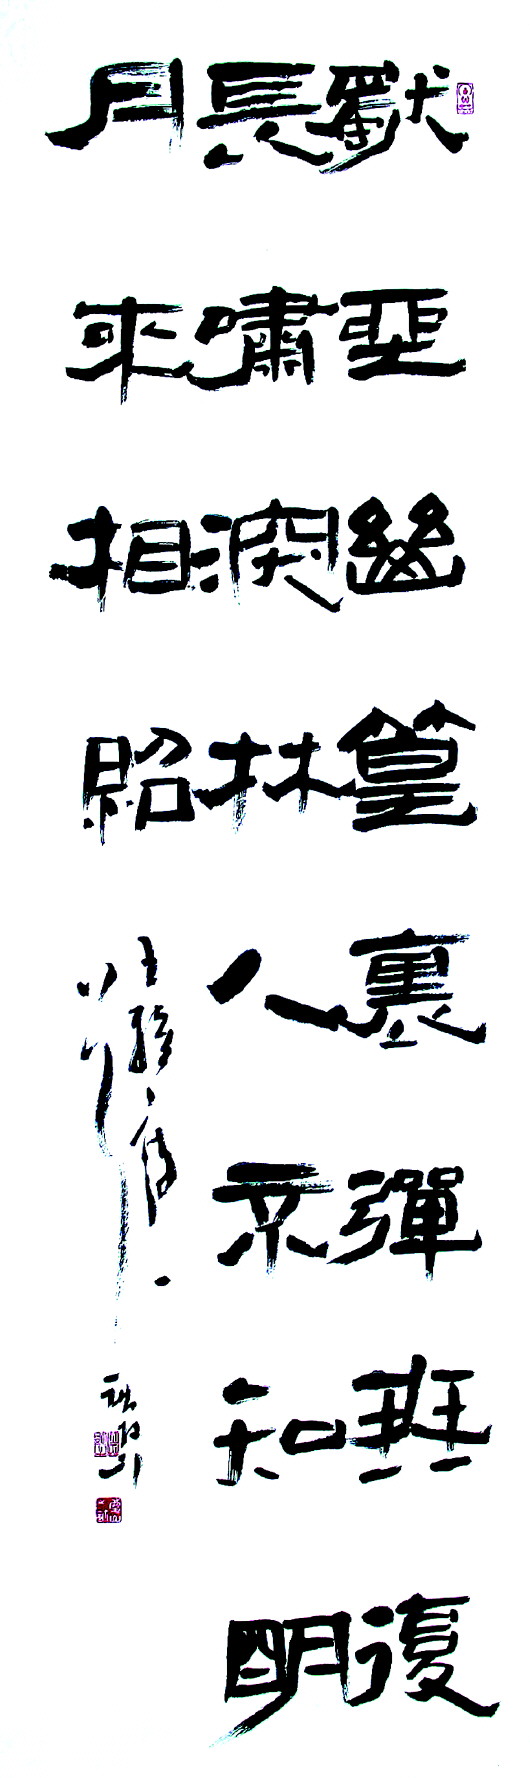 獨坐幽篁裏彈琴復
長嘯深林人不知明
月來相照
王維